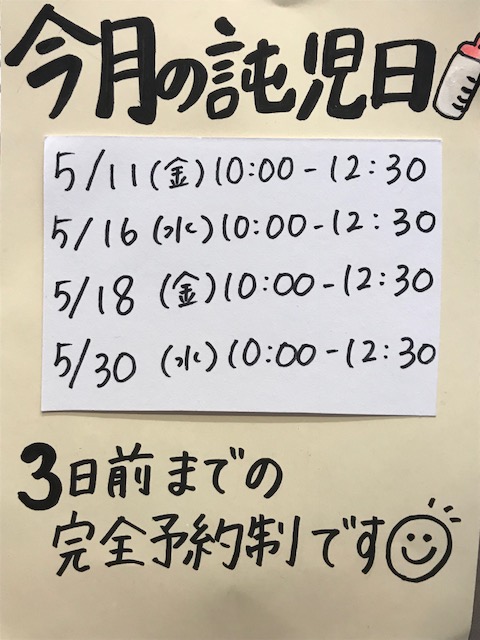 今月の託児日
5/11(金)10:00-12:30
5/16(水)10:00-12:30
5/18(金)10:00-12:30
5/30(水)10:00-12:30
3日前までの
完全予約制です